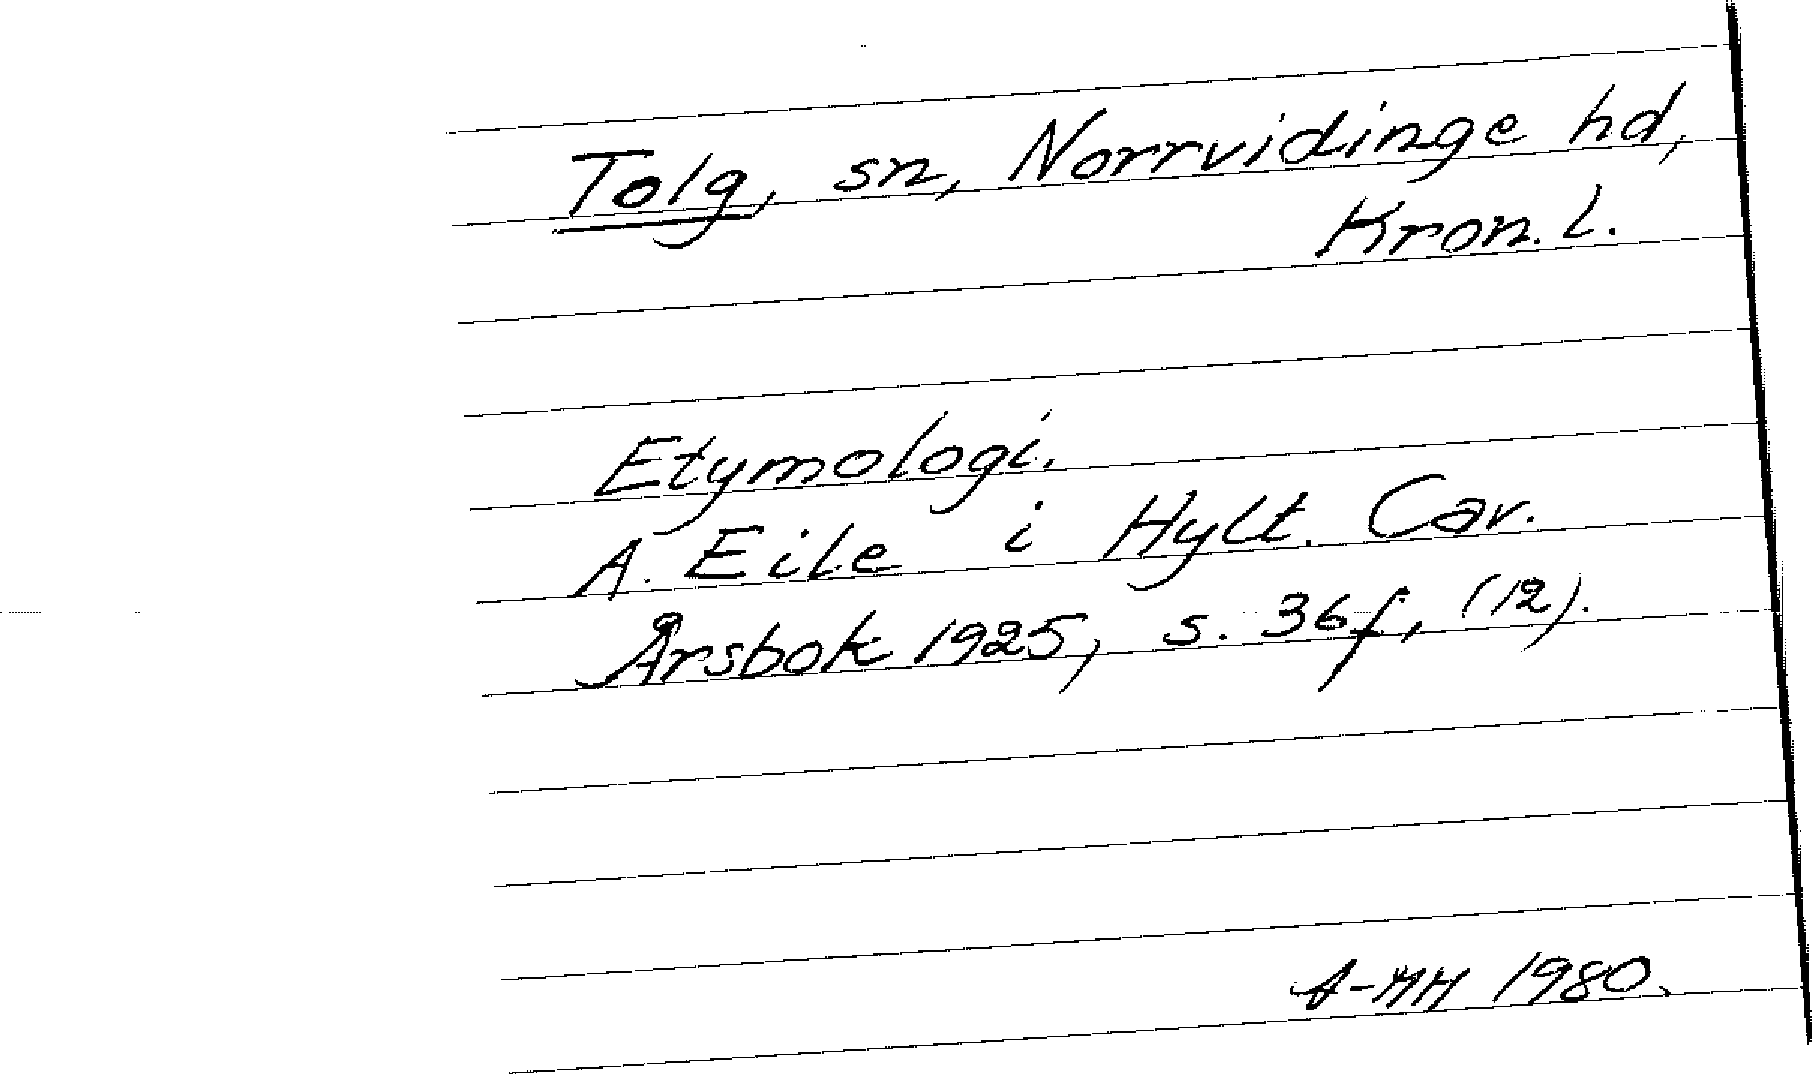 Tolg, sn, Norrvidinge hd,
Kron. l.
Etymologi.
A. Eile i Hylt. Cav.
Årsbok 1925, s. 36 f, (12).
A-MH 1980.